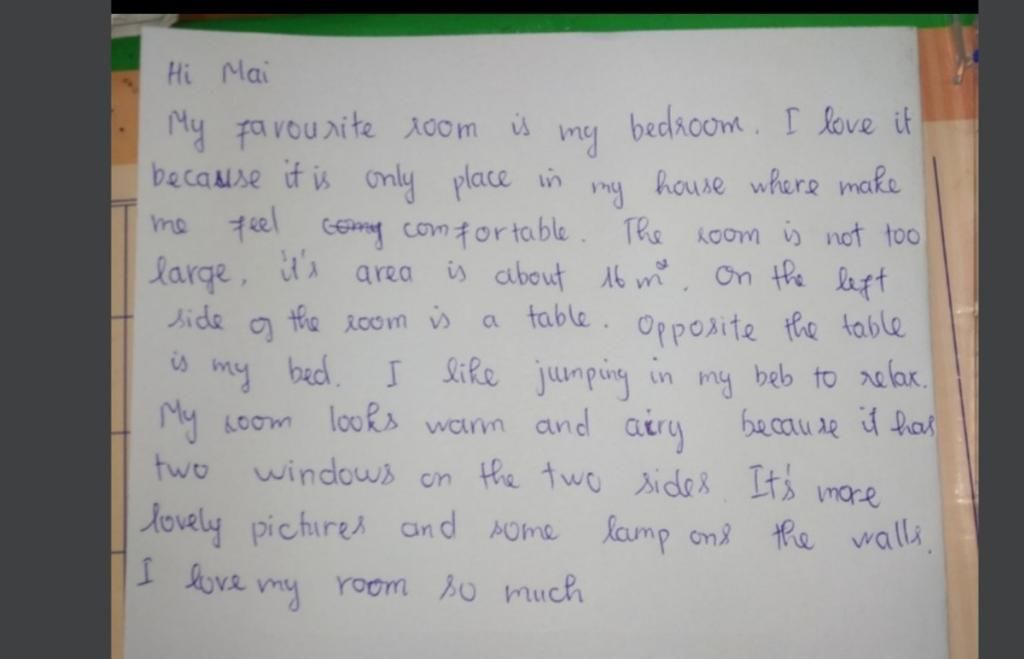 Hi Mai
My favourite room is my bedroom. I love it
because it is only place in my house where make
me feel comfortable. The room is not too
large, it's area is about 16 m². On the left
side of the room is a table. Opposite the table
is my bed. I like jumping in my beb to relax.
My room looks warm and airy because it has
two windows on the two sides. It's more
lovely pictures and some lamp ons the walls.
I love my room so much